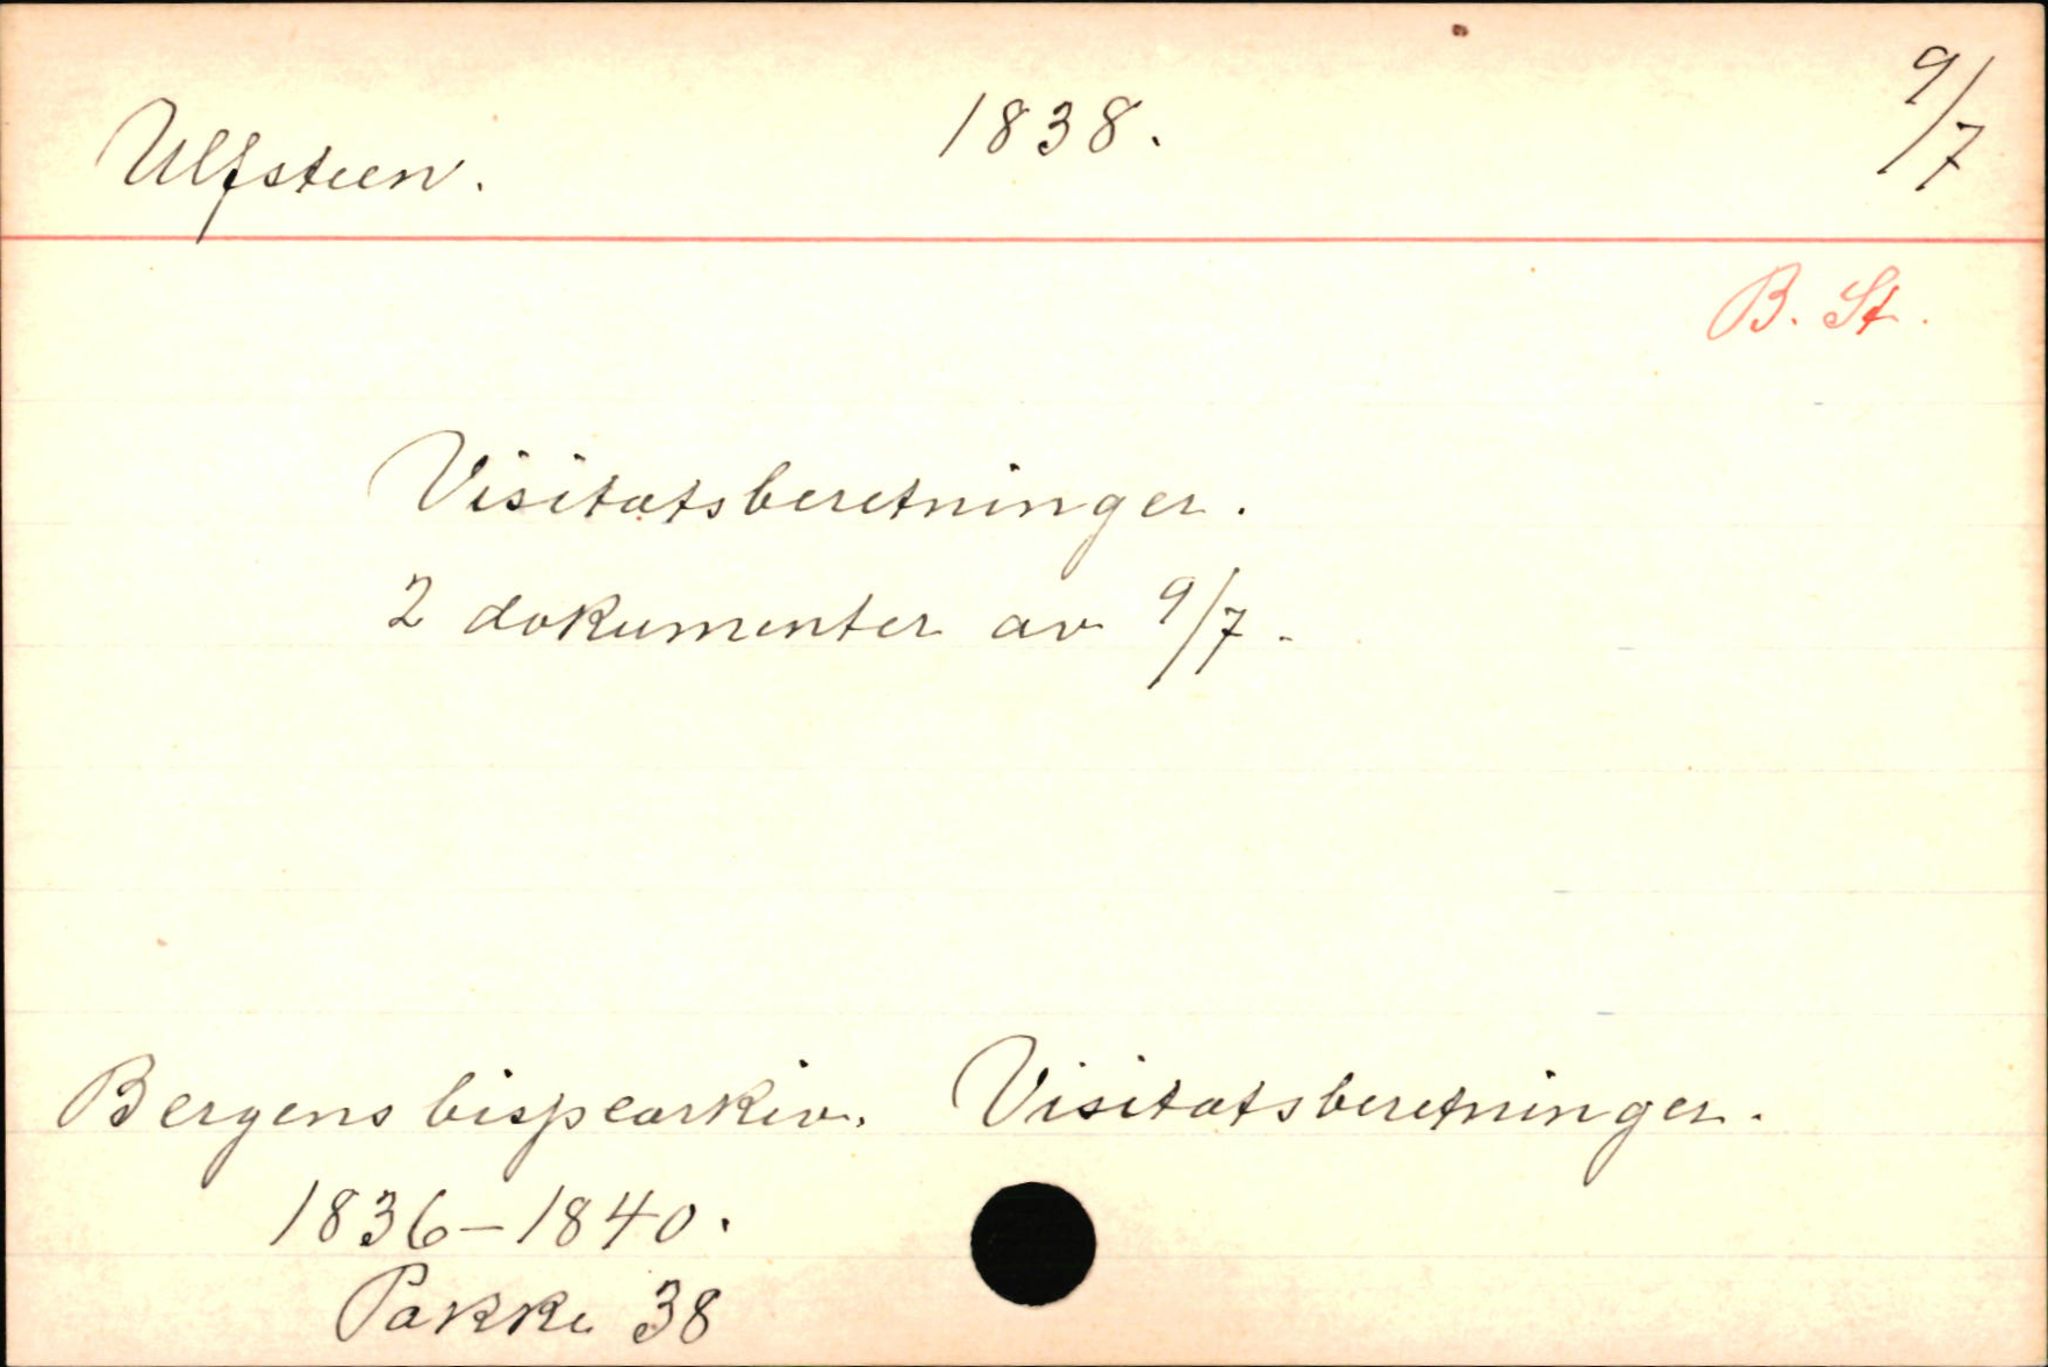 Ulfsteen. 1838. 9/7
B. St.
Visitatsberetninger.
2 dokumenter av 9/7.
Bergens bispearkiv. Visitatsberetninger.
1836-1840.
Pakke 38